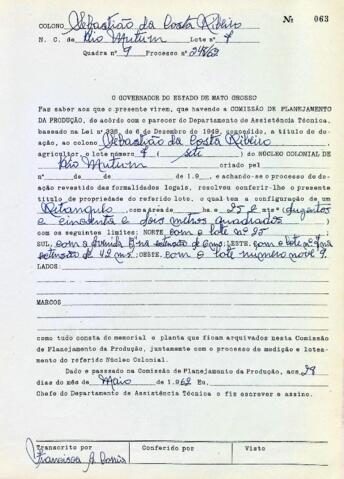 Nº 063
COLONO Sebastião da Costa Ribeiro
N. C. de Rio Mutum Lote nº 7
Quadra nº 9 Processo nº
O GOVERNADOR DO ESTADO DE MATO GROSSO
Faz saber aos que o presente virem, que havendo a COMISSÃO DE PLANEJAMENTO
DA PRODUÇÃO, de acôrdo com o parecer do Departamento de Assistência Técnica,
baseado na Lei nº 336, de 6 de Dezembro de 1949, concedido, a título de doa-
ção, ao colono Sebastião da Costa Ribeiro
agricultor, o lote número 7 (sete) do NÚCLEO COLONIAL DE
Rio Mutum criado pel
nº de de de 1.9 , e achando-se o processo de do-
ação revestido das formalidades legais, resolveu conferir-lhe o presente
título de propriedade do referido loto, o qual tem a configuração de um
Retangulo, com área de ha e 252 mts² (duzentos
e cincoenta e dois metros quadrados)
com os seguintes limites: NORTE com o lote nº
SUL, com a Avenida na extensão de LESTE, com o lote nº na
extensão de 42 ms. OESTE, com o lote numero nove 9.
LADOS:
MARCOS
como tudo consta do memorial e planta que ficam arquivados nesta Comissão
de Planejamento da Produção, juntamente com o processo de medição e lotea-
mento do referido Núcleo Colonial.
Dado e passado na Comissão de Planejamento da Produção, aos 28
dias do mês de Maio de 1.962 Eu,
Chefe do Departamento de Assistência Técnica o fiz escrever e assino.
Transcrito por Conferido por Visto
Francisca